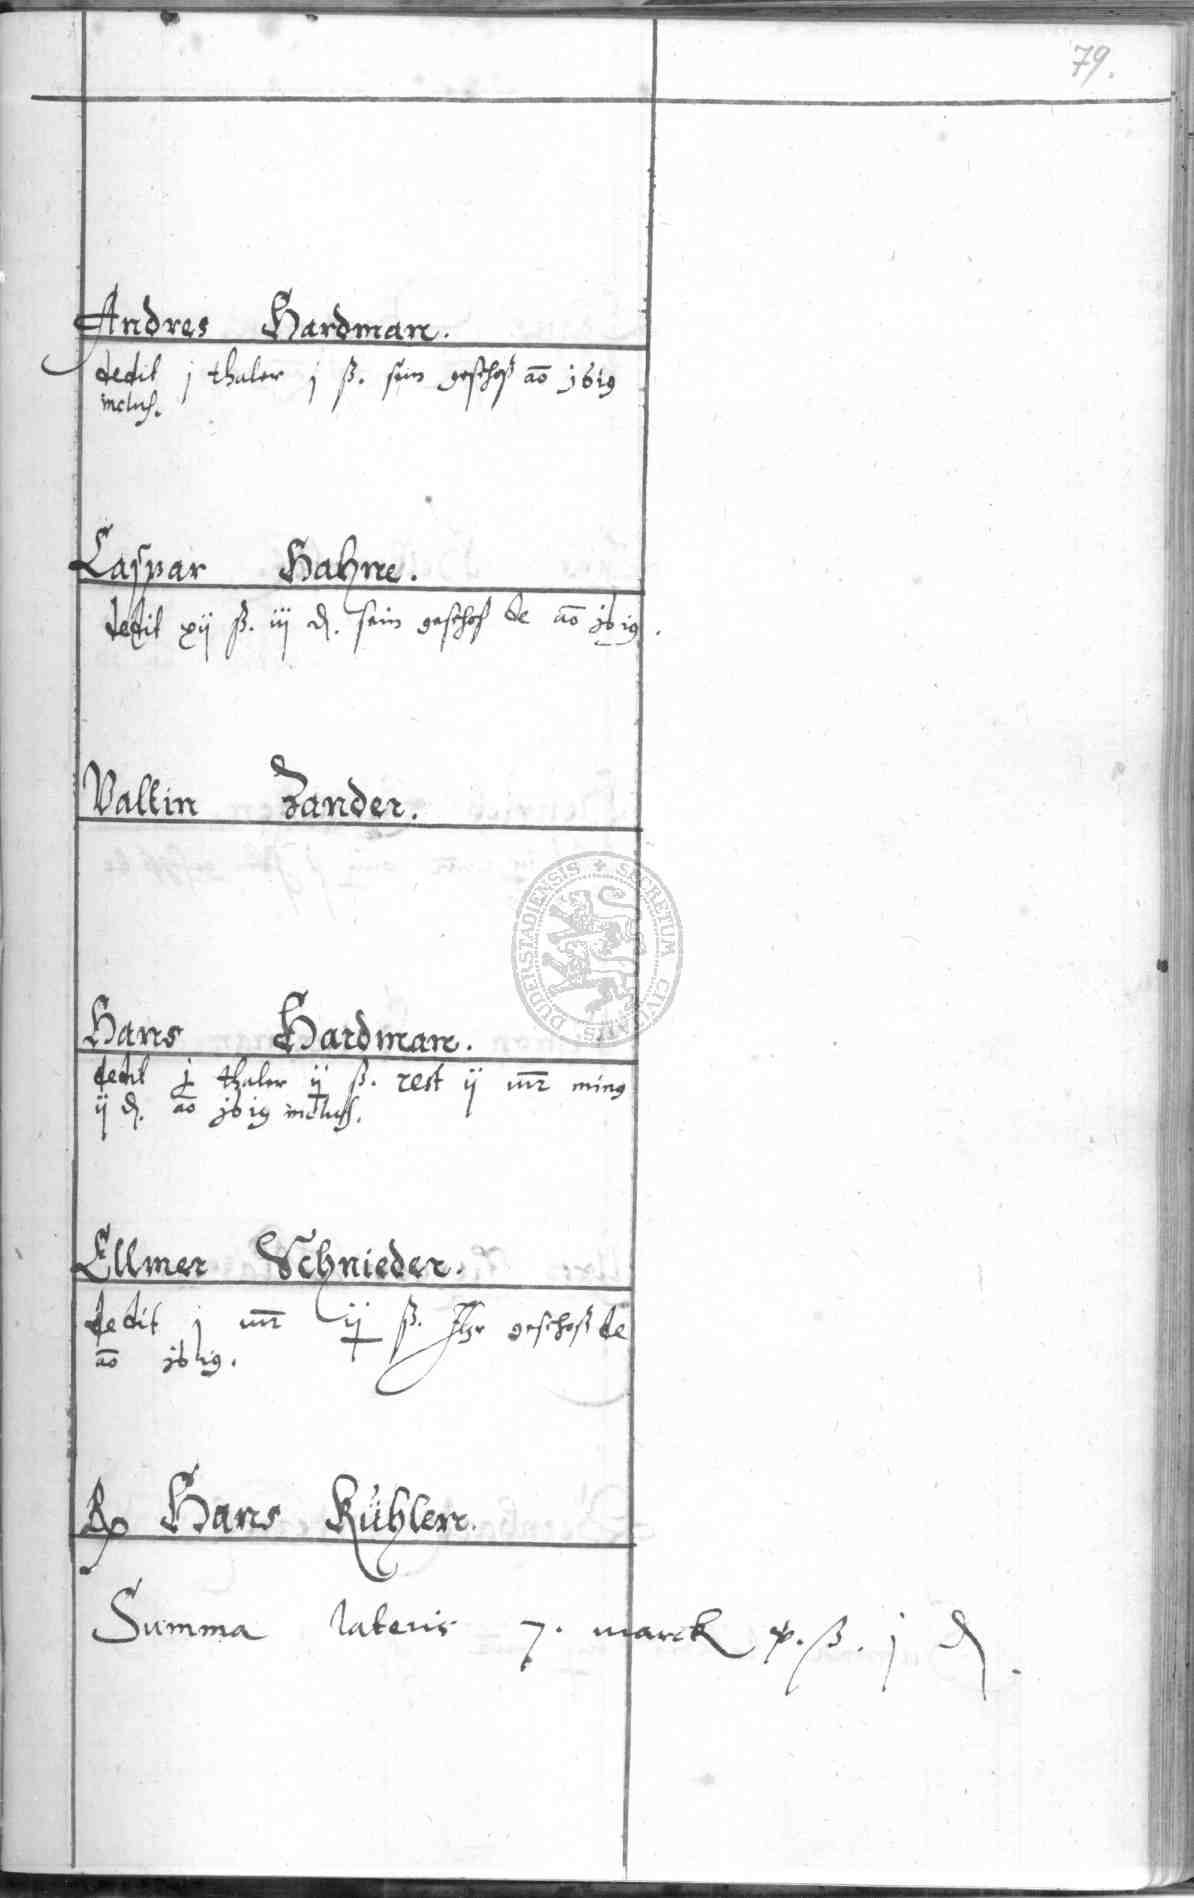 79.
Andres Hardman.
dedit j thaler j ß. sein geschoß ao 1619
inclus.
Caspar Hahne.
dedit xij ß. iij d. sein geschoß de ao 1619.
Valtin Zander.
SECRETUM CIVITATIS DUDERSTADIENSIS
Hans Hardman.
dedit j thaler ij ß. rest ij mr minus
ij d. ao 1619 incluss.
Ellmer Schnieder.
dedit j mr ij ß. Ihr geschoß de
ao 1619.
Hans Kühlen.
Summa lateris 7. marck x. ß. j d.